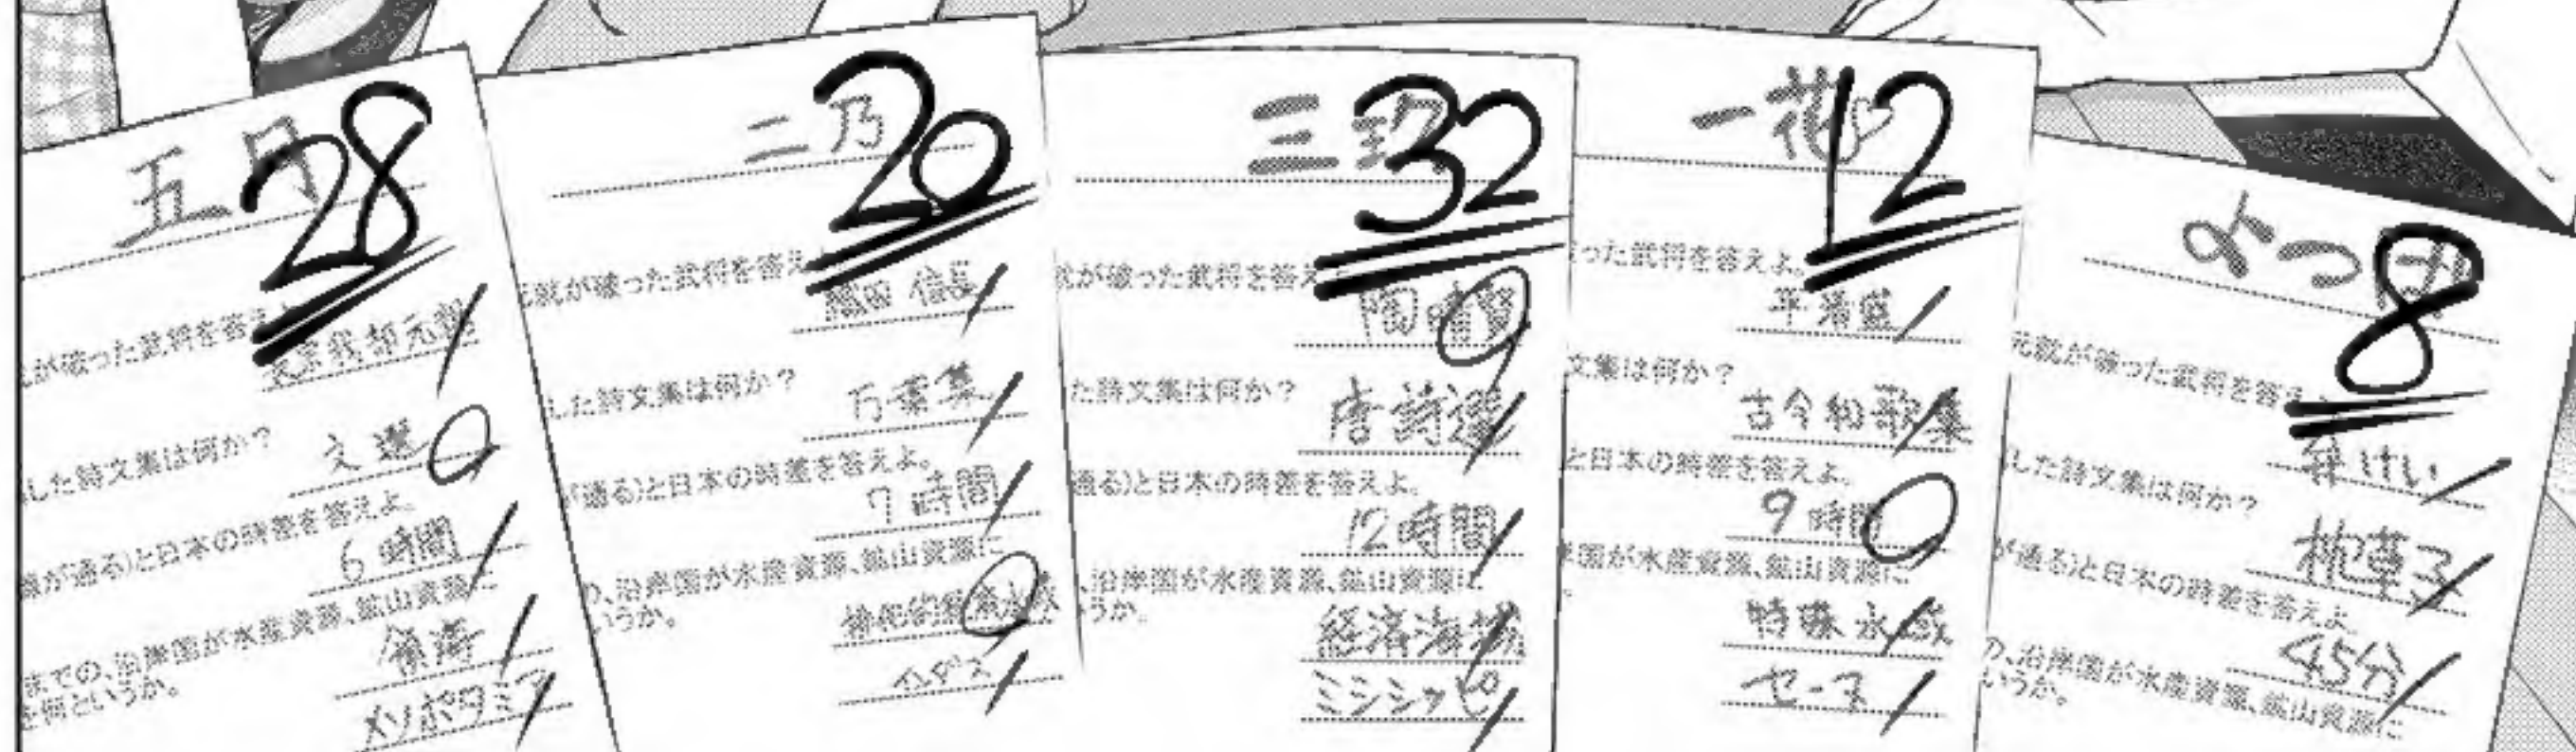 五月
28
が破った武将を答え
長宗我部元親
した詩文集は何か？
文選
が通る)と日本の時差を答えよ。
6時間
までの、沿岸国が水産資源、鉱山資源に
を何というか。
領海
メソポタミア
二乃
20
元就が破った武将を答え
織田信長
した詩文集は何か？
万葉集
が通る)と日本の時差を答えよ。
7時間
の、沿岸国が水産資源、鉱山資源に
いうか。
排他的経済水域
インダス
三玖
32
就が破った武将を答え
陶晴賢
た詩文集は何か？
唐詩選
通る)と日本の時差を答えよ。
12時間
、沿岸国が水産資源、鉱山資源に
うか。
経済海域
ミシシッピ
一花
12
った武将を答えよ。
平清盛
文集は何か？
古今和歌集
と日本の時差を答えよ。
9時間
国が水産資源、鉱山資源に
特殊水域
セーヌ
よつば
8
元就が破った武将を答え
弁けい
した詩文集は何か？
枕草子
が通る)と日本の時差を答えよ。
45分
の、沿岸国が水産資源、鉱山資源に
いうか。